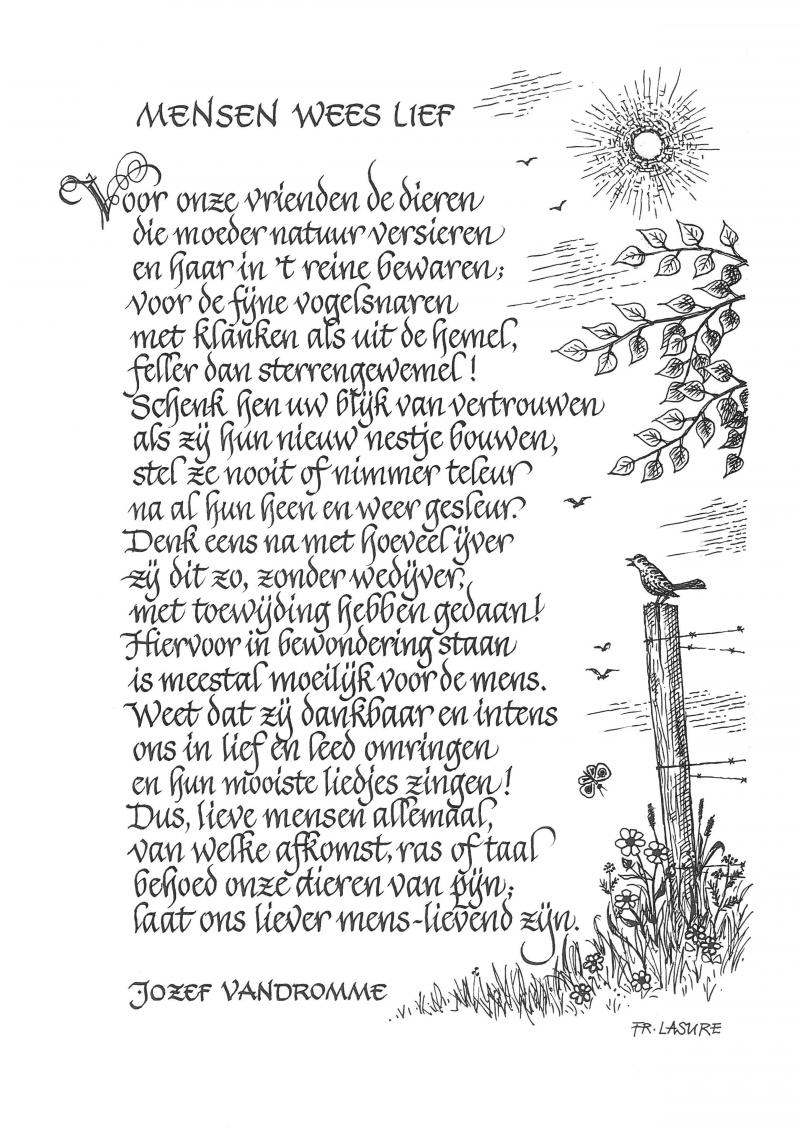 MENSEN WEES LIEF
Voor onze vrienden de dieren
die moeder natuur versieren
en haar in 't reine bewaren;
voor de fijne vogelsnaren
met klanken als uit de hemel,
feller dan sterrengewemel!
Schenk hen uw blijk van vertrouwen
als zij hun nieuw nestje bouwen,
stel ze nooit of nimmer teleur
na al hun heen en weer gesleur.
Denk eens na met hoeveel ijver
zij dit zo, zonder wedijver,
met toewijding hebben gedaan!
Hiervoor in bewondering staan
is meestal moeilijk voor de mens.
Weet dat zij dankbaar en intens
ons in lief en leed omringen
en hun mooiste liedjes zingen!
Dus, lieve mensen allemaal,
van welke afkomst, ras of taal
behoed onze dieren van pijn;
laat ons liever mens-lievend zijn.
JOZEF VANDROMME
FR. LASURE